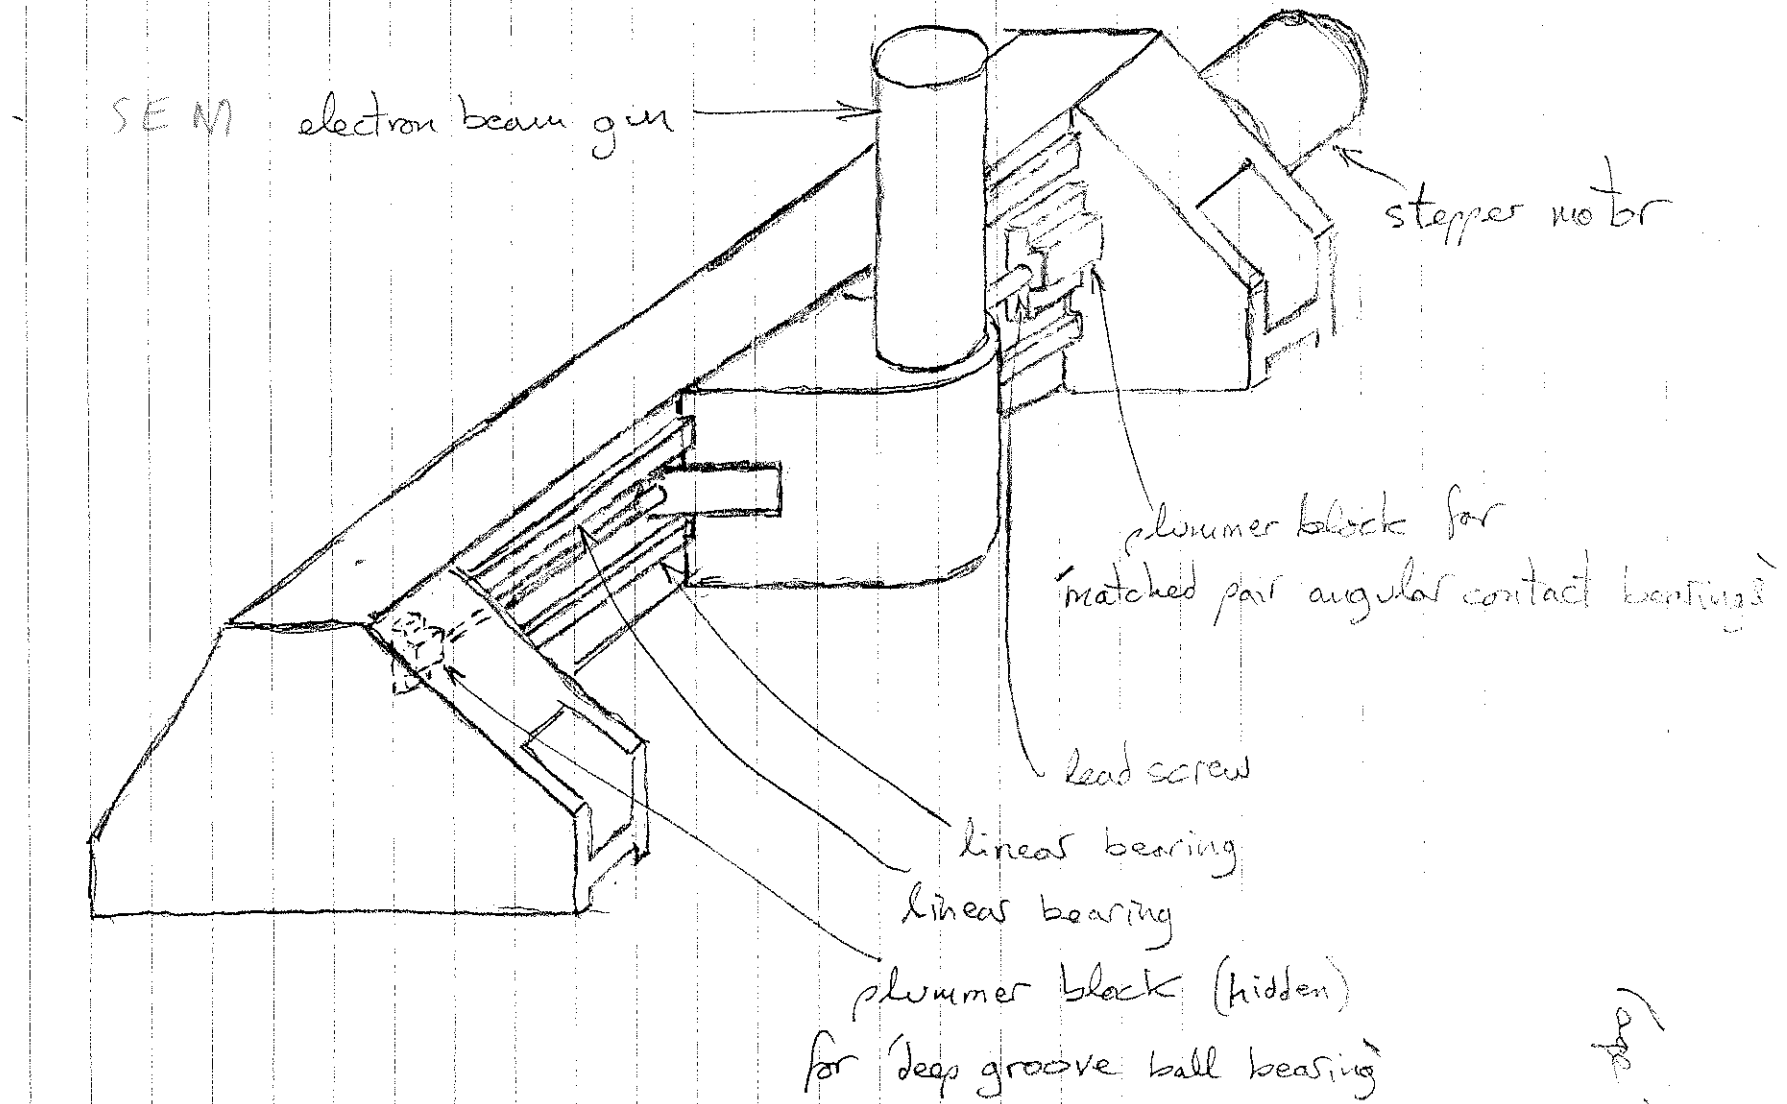 SEM electron beam gun
stepper motor
plummer block for
'matched pair angular contact bearings'
lead screw
linear bearing
linear bearing
plummer block (hidden)
for 'deep groove ball bearing'